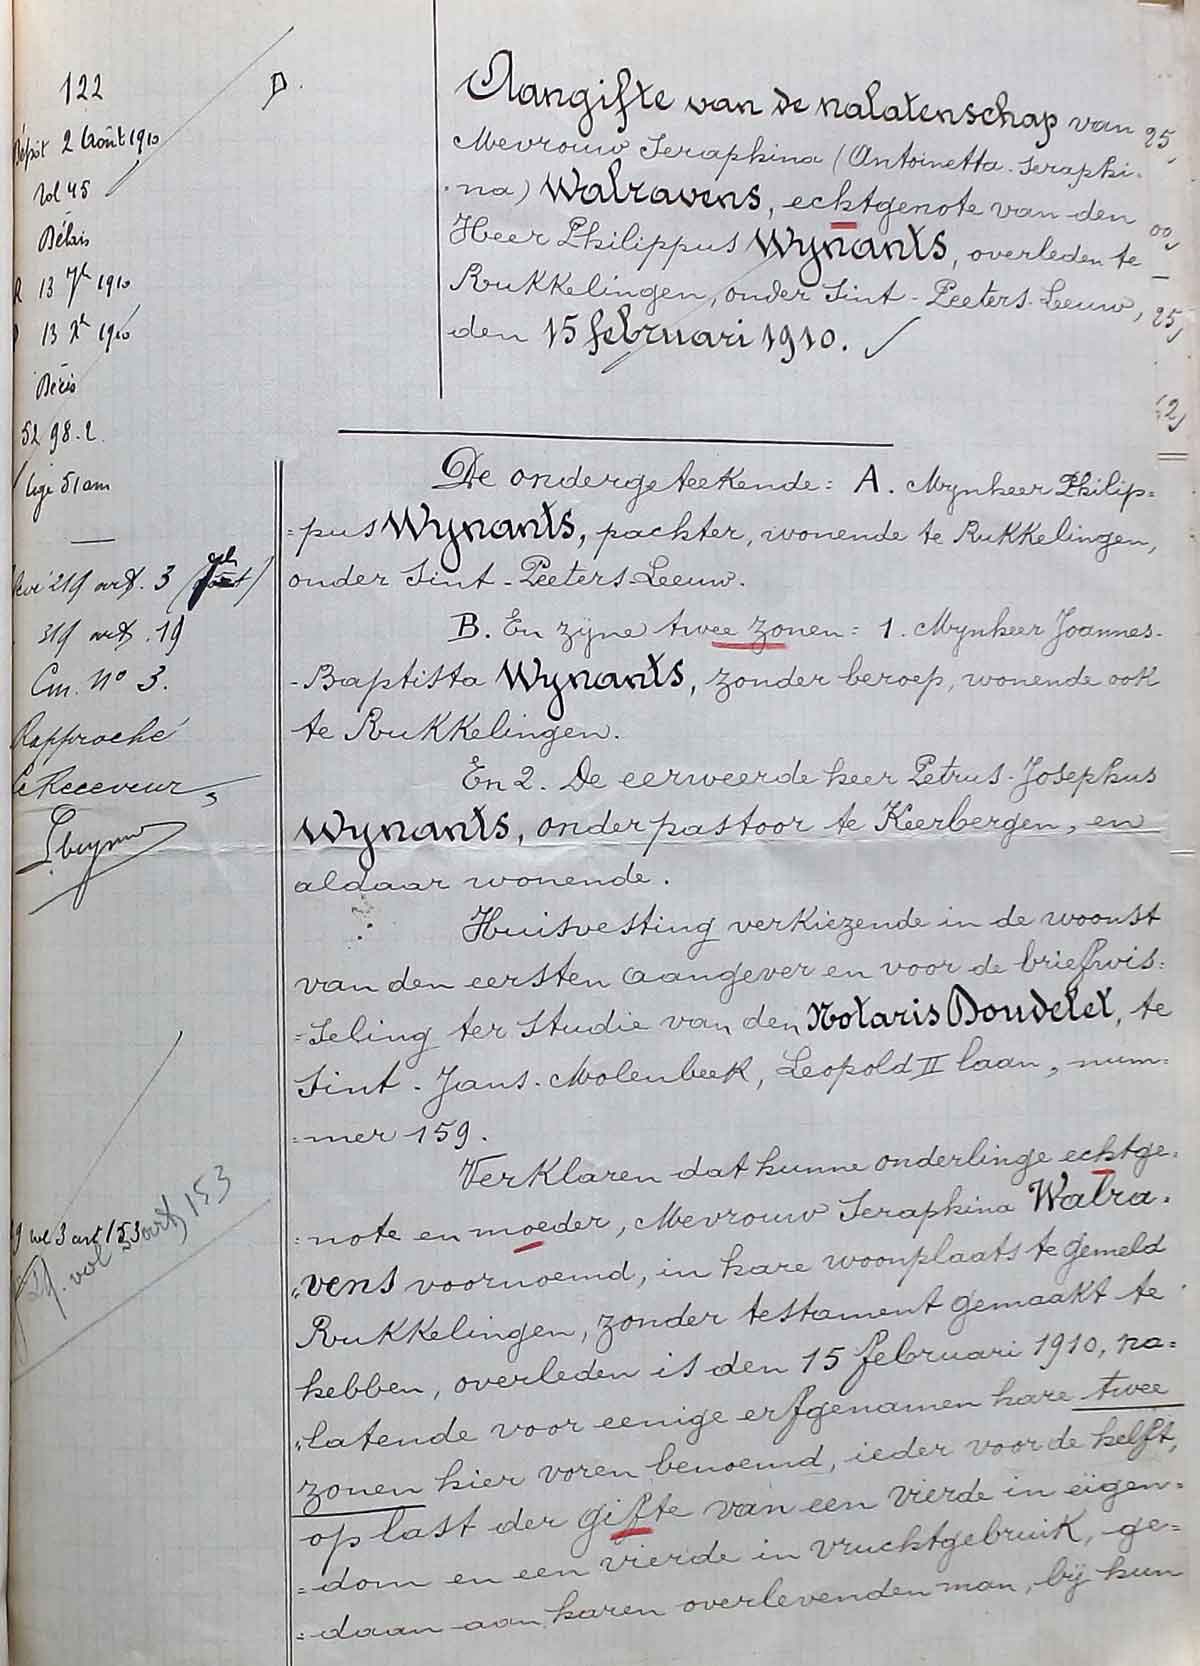 122
D.
Dépôt 2 Août 1910
Vol 45
Délais
R 13 7bre 1910
13 Xbre 1910
Décès
52 98.2
51 am
219 art. 3
319 art. 19
Cm. No 3.
Rapproché
Le Receveur,
vol 3 art 153
vol 3 art 153
Aangifte van de nalatenschap van
Mevrouw Seraphina (Antoinetta-Seraphi-
-na) Walravens, echtgenote van den
Heer Philippus Wynants, overleden te
Rukkelingen, onder Sint-Peeters-Leeuw,
den 15 februari 1910.
25,
00,
25,
De ondergeteekende: A. Mynheer Philip=
=pus Wynants, pachter, wonende te Rukkelingen,
onder Sint-Peeters-Leeuw.
B. En zyne twee zonen: 1. Mynheer Joannes-
-Baptista Wynants, zonder beroep, wonende ook
te Rukkelingen.
En 2. De eerweerde heer Petrus-Josephus
Wynants, onderpastoor te Keerbergen, en
aldaar wonende.
Huisvesting verkiezende in de woonst
van den eersten aangever en voor de briefwis=
=seling ter studie van den Notaris Doudelet, te
Sint-Jans-Molenbeek, Leopold II laan, num=
=mer 159.
Verklaren dat hunne onderlinge echtge=
=note en moeder, Mevrouw Seraphina Walra=
=vens voornoemd, in hare woonplaats te gemeld
Rukkelingen, zonder testament gemaakt te
hebben, overleden is den 15 februari 1910, na=
=latende voor eenige erfgenamen hare twee
zonen hier voren benoemd, ieder voor de helft,
op last der gifte van een vierde in eigen=
=dom en een vierde in vruchtgebruik, ge=
=daan aan haren overlevenden man, bij hun